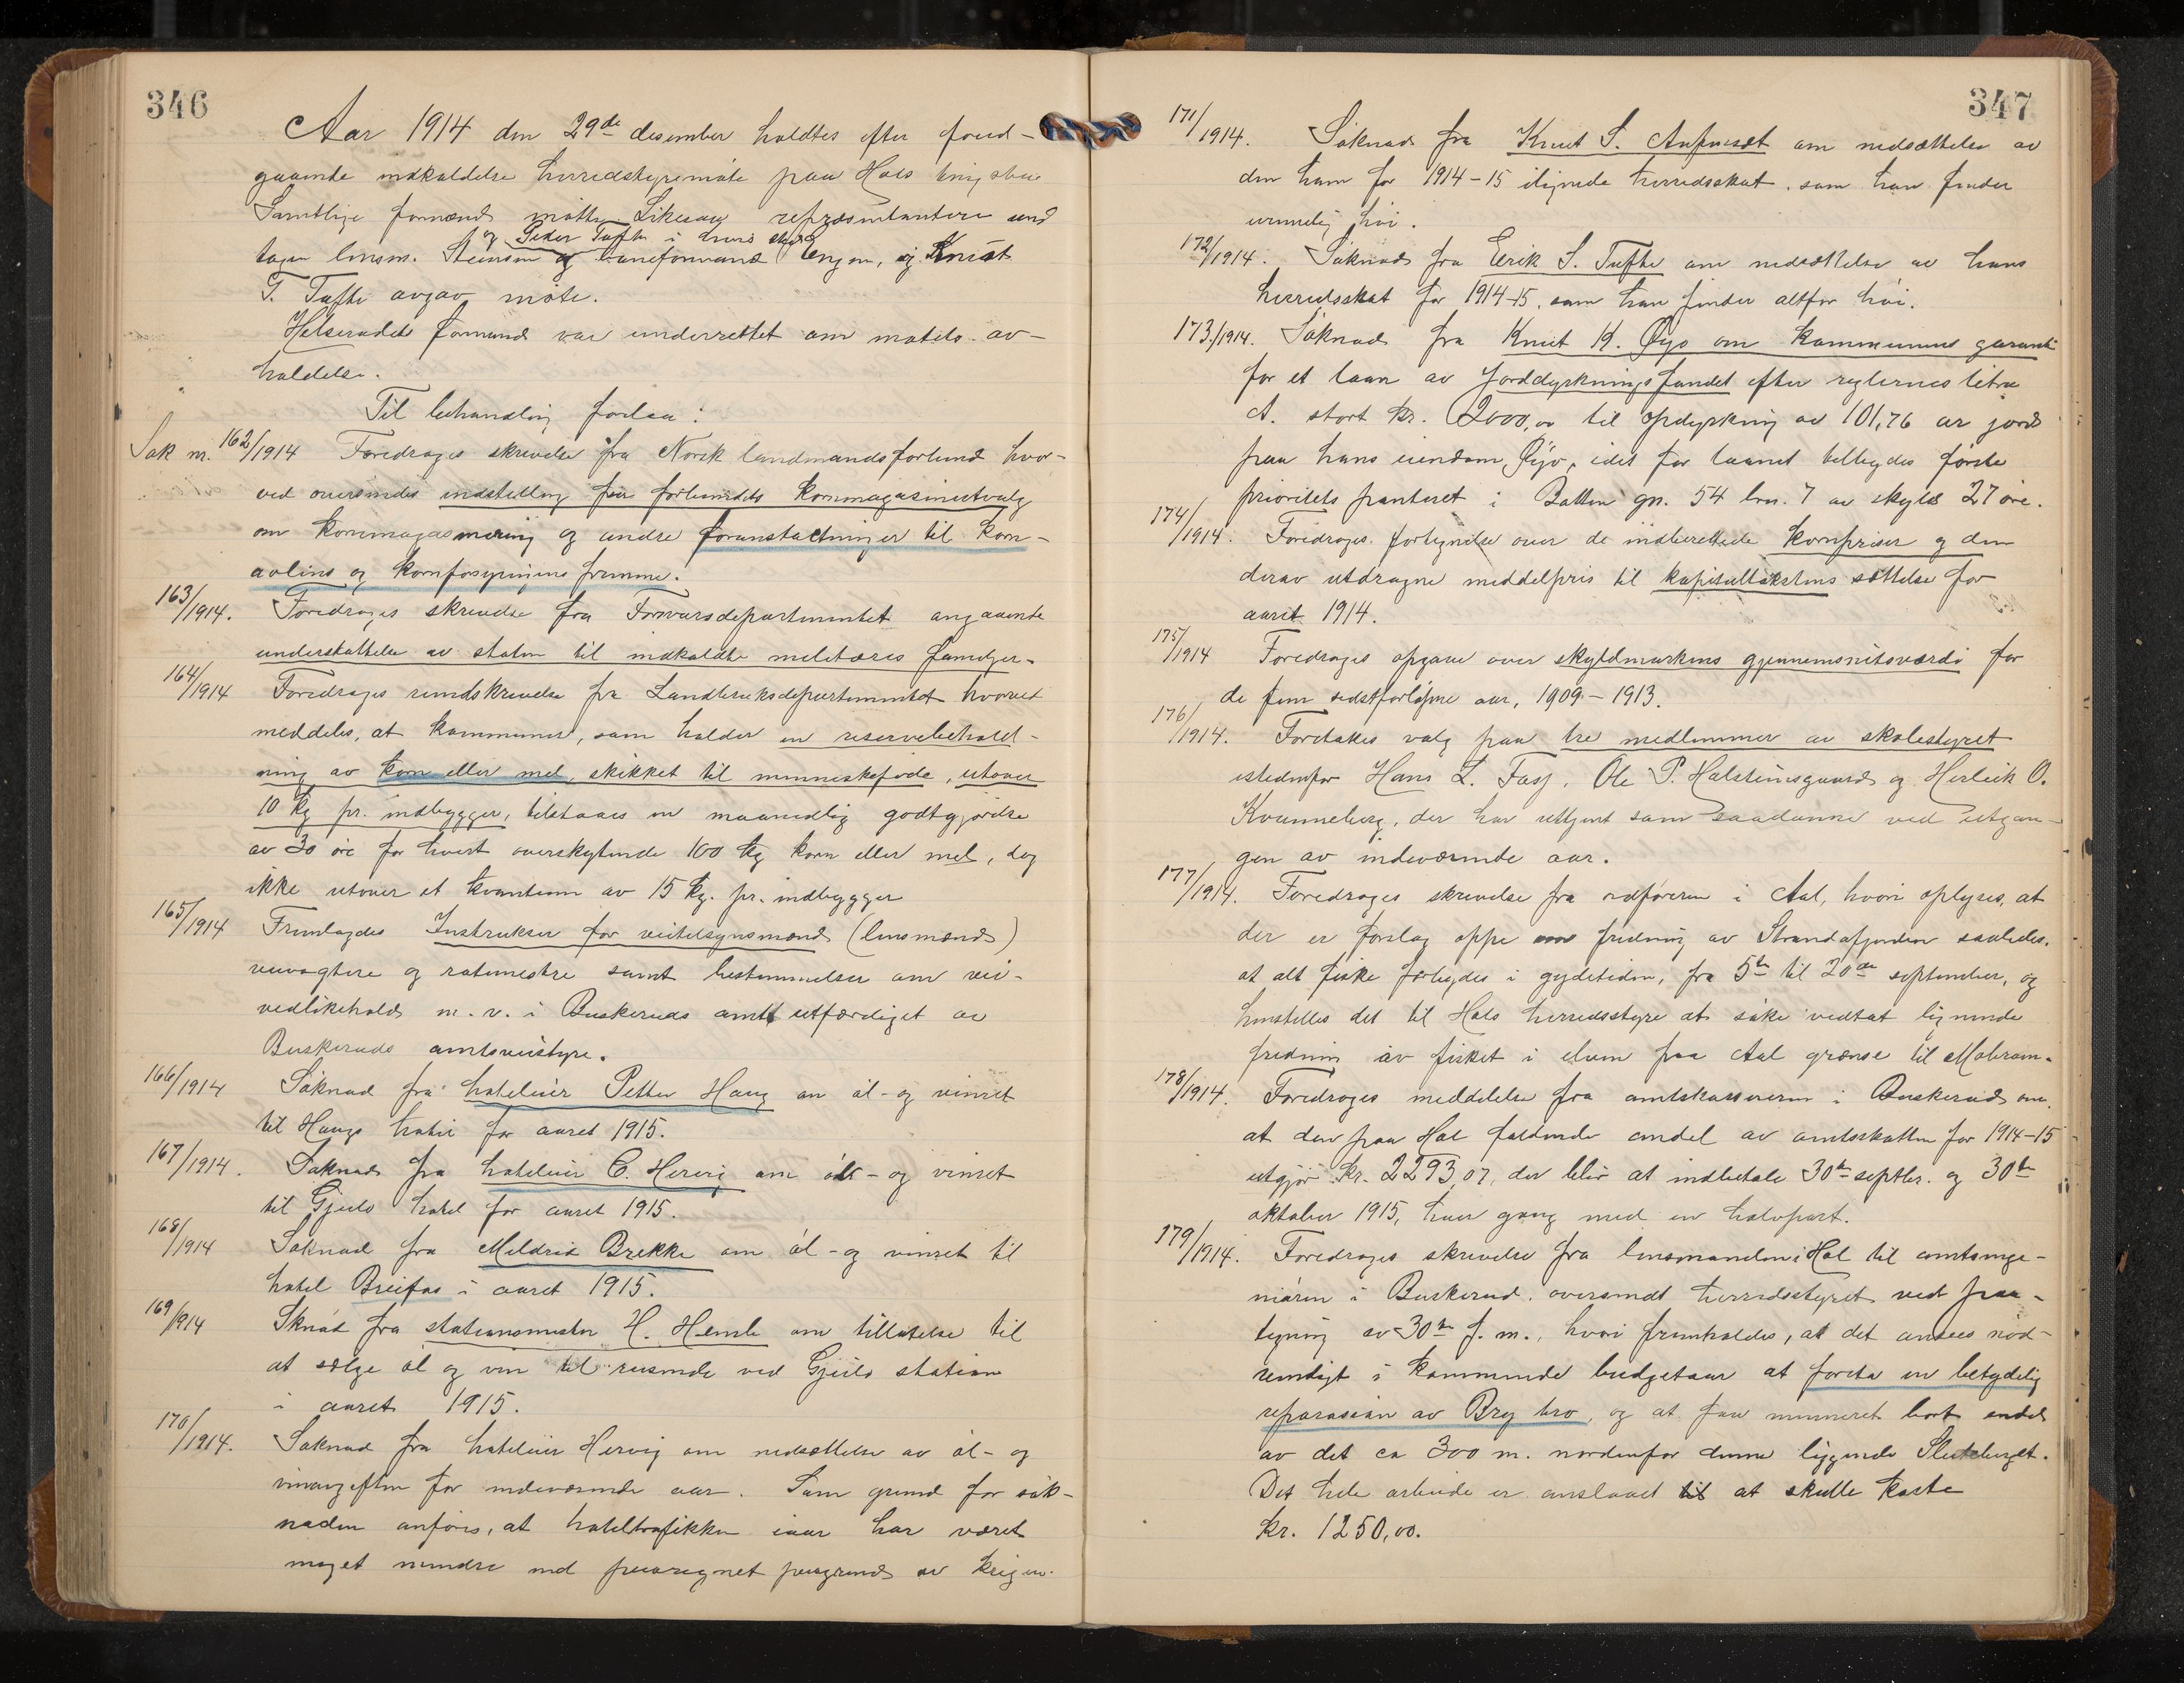 346
Aar 1914 den 29de desember holdtes efter foud-
gaaende indkaldelse herredstyremöte paa Hols tingstue
Samtlige formænd mötte. Likesaa repræsentantere und
og Peder Tufte i hvis sted
tagen lensm. Steinsen og baneformand Engen, og Knut
T. Tufte avgav möte.
Helseradets formand var underrettet om mötets av-
holdelse.
Til behandling forlaa:
Sak nr. 162/1914 Foredroges skrivelse fra Norsk landmandsforbund hvor-
ved oversendes indstilling fra forbundets kornmagasinutvalg
om kornmagasinering og andre foranstaltninger til korn-
avlens og kornforsyningens fremme.
163/1914. Foredroges skrivelse fra Forsvarsdepartementet angaaende
understøttelse av staten til indkaldte militæres familjer.
164/1914 Foredroges rundskrivelse fra Landbruksdepartementet hvorved
meddeles, at kommuner, som holder en reservebehold-
ning av korn eller mel, skikket til menneskeföde, utover
10 kg pr. indbygger, tilstaaes en maanedlig godtgjörelse
av 30 öre for hvert overskytende 100 kg korn eller mel, dog
ikke utover et kvantum av 15 kg. pr. indbygger
165/1914 Fremlagdes Instrukser for veitilsynsmænd (lensmænd)
veivogtere og rotemestre samt bestemmelser om vei-
vedlikehold m. v. i Buskeruds amt utfærdiget av
Buskeruds amtsveistyre.
166/1914 Söknad fra hoteleier Petter Haug om öl- og vinret
til Haugs hotel for aaret 1915.
167/1914. Söknad fra hoteleier C. Hervig om öl- og vinret
til Gjeilo hotel for aaret 1915.
168/1914 Söknad fra Mildrid Brekke om öl- og vinret til
hotel Breifos i aaret 1915.
169/1914 Sknád fra stationsmester H. Hemle om tillatelse til
at sælge öl og vin til reisende ved Gjeilo station
i aaret 1915.
170/1914. Söknad fra hoteleier Hervig om nedsættelse av öl- og
vinavgiften for indeværende aar. Som grund for sök-
naden anföres, at hoteltrafikken iaar har været
meget mindre end paaregnet paagrund av krigen.
347
171/1914. Söknad fra Knut S. om nedsættelse av
den ham for 1914-15 ilignede herredsskat, som han finder
urimelig höi.
172/1914. Söknad fra Eerik S. Tufte om nedsættelse av hans
herredsskat for 1914-15, som han finder altfor höi.
173/1914. Söknad fra Knut K. Öyo om kommunens garanti
for et laan av Jorddyrkningsfondet efter reglernes litra
A. stort kr. 2000,00 til opdyrkning av 101,76 ar jord
paa hans eiendom Öyo, idet for laanet tilbydes förste
prioritets panteret i Batten gn. 54 brn. 7 av skyld 27 öre.
174/1914. Foredroges fortegnelse over de indberettede kornpriser og den
derav utdragne meddelpris til kapitaltakstens sættelse for
aaret 1914.
175/1914 Foredroges opgave over skyldmarkens gjennemsnitsværdi for
de fem sidstforløpne aar, 1909-1913.
176/1914. Foretakes valg paa tre medlemmer av skolestyret
istedenfor Hans L. Fasj, Ole P. Halsteinsgaard og Herleik O.
Kvinneberg, der har uttjent som saadanne ved utgan-
gen av indeværende aar.
177/1914. Foredroges skrivelse fra ordföreren i Aal, hvori oplyses, at
der er forslag oppe om fredning av Strandafjorden saaledes,
at alt fiske forbydes i gydetiden, fra 5te til 20de september, og
henstilles det til Hols herredsstyre at söke vedtat lignende
fredning av fisket i elven fra Aal grænse til
178/1914. Foredroges meddelelse fra amtskassereren i Buskerud om,
at den paa Hol faldende andel av amtsskatten for 1914-15
utgjör kr. 2293,07, der blir at indbetale 30te septbr. og 30te
oktober 1915, hver gang med en halvpart.
179/1914. Foredroges skrivelse fra lensmanden i Hol til amtsinge-
niören i Buskerud, oversendt herredsstyret ved paa-
tegning av 30te f. m., hvori fremholdes, at det ansees nöd-
vendigt i kommende budgetaar at foreta en betydelig
reparasion av Bry bro, og at faa mineret bort endel
av det ca 300 m. nordenfor denne liggende Sleteberget.
Det hele arbeide er anslaaet til at skulle koste
kr. 1250,00.